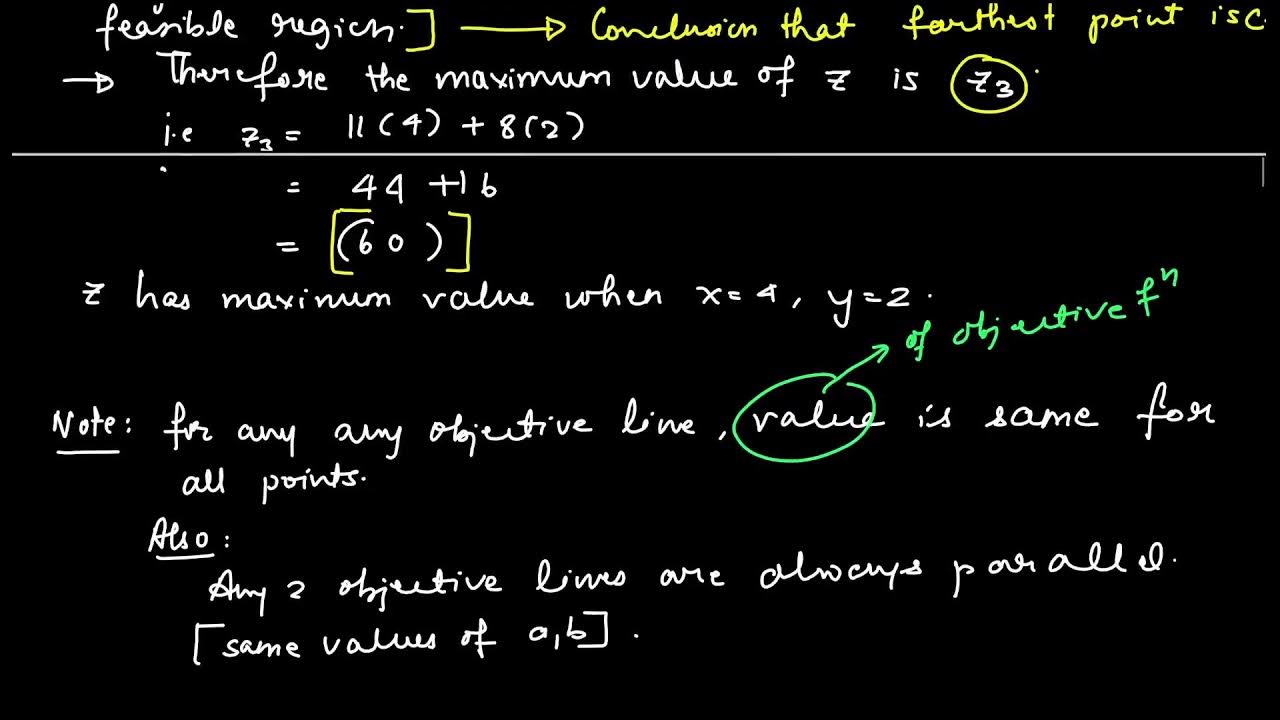 feasible region.] → Conclusion that farthest point is C
→ Therefore the maximum value of z is z₃.
i.e z₃ = 11(4) + 8(2)
= 44 + 16
= [(60)]
z has maximum value when x=4, y=2.
of objective fⁿ
Note: for any any objective line, value is same for
all points.
Also:
Any 2 objective lines are always parallel.
[same values of a,b].